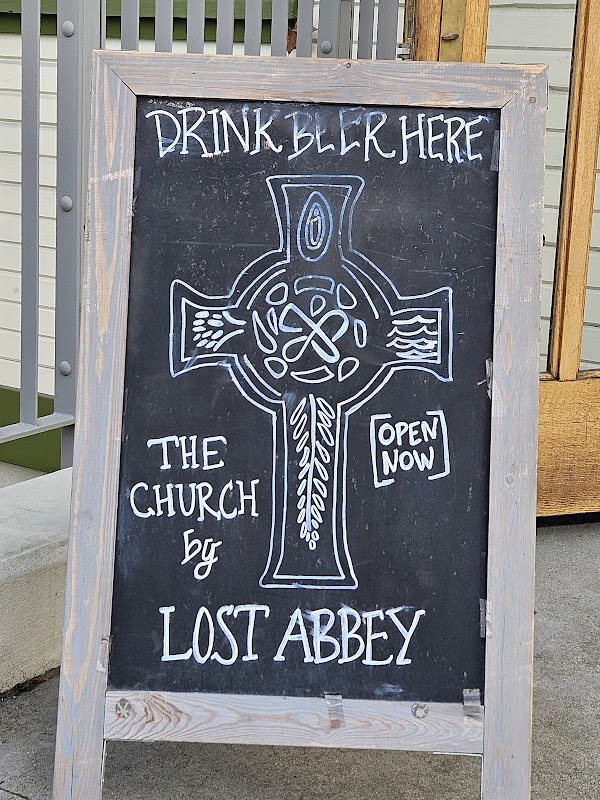 DRINK BEER HERE
OPEN
NOW
THE
CHURCH
by
LOST ABBEY